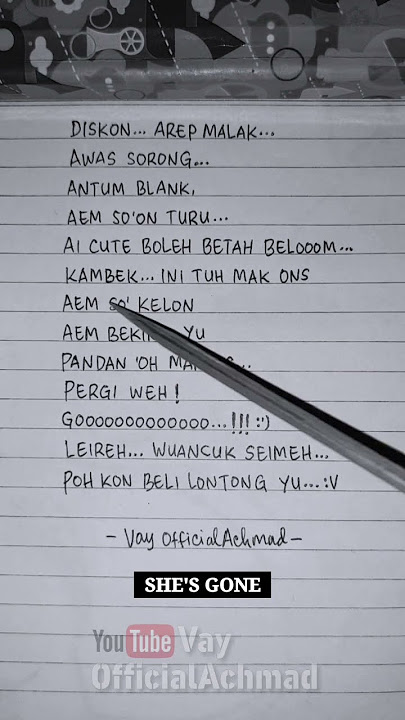 DISKON... AREP MALAK...
AWAS SORONG...
ANTUM BLANK,
AEM SO'ON TURU...
AI CUTE BOLEH BETAH BELOOOM...
KAMBEK... INI TUH MAK ONS
AEM SO' KELON
AEM YU
PANDAN 'OH
PERGI WEH!
GOOOOOOOOOOOOO...!!! :')
LEIREH... WUANCUK SEIMEH...
POH KON BELI LONTONG YU...:V
- Vay OfficialAchmad -
SHE'S GONE
YouTube Vay
OfficialAchmad